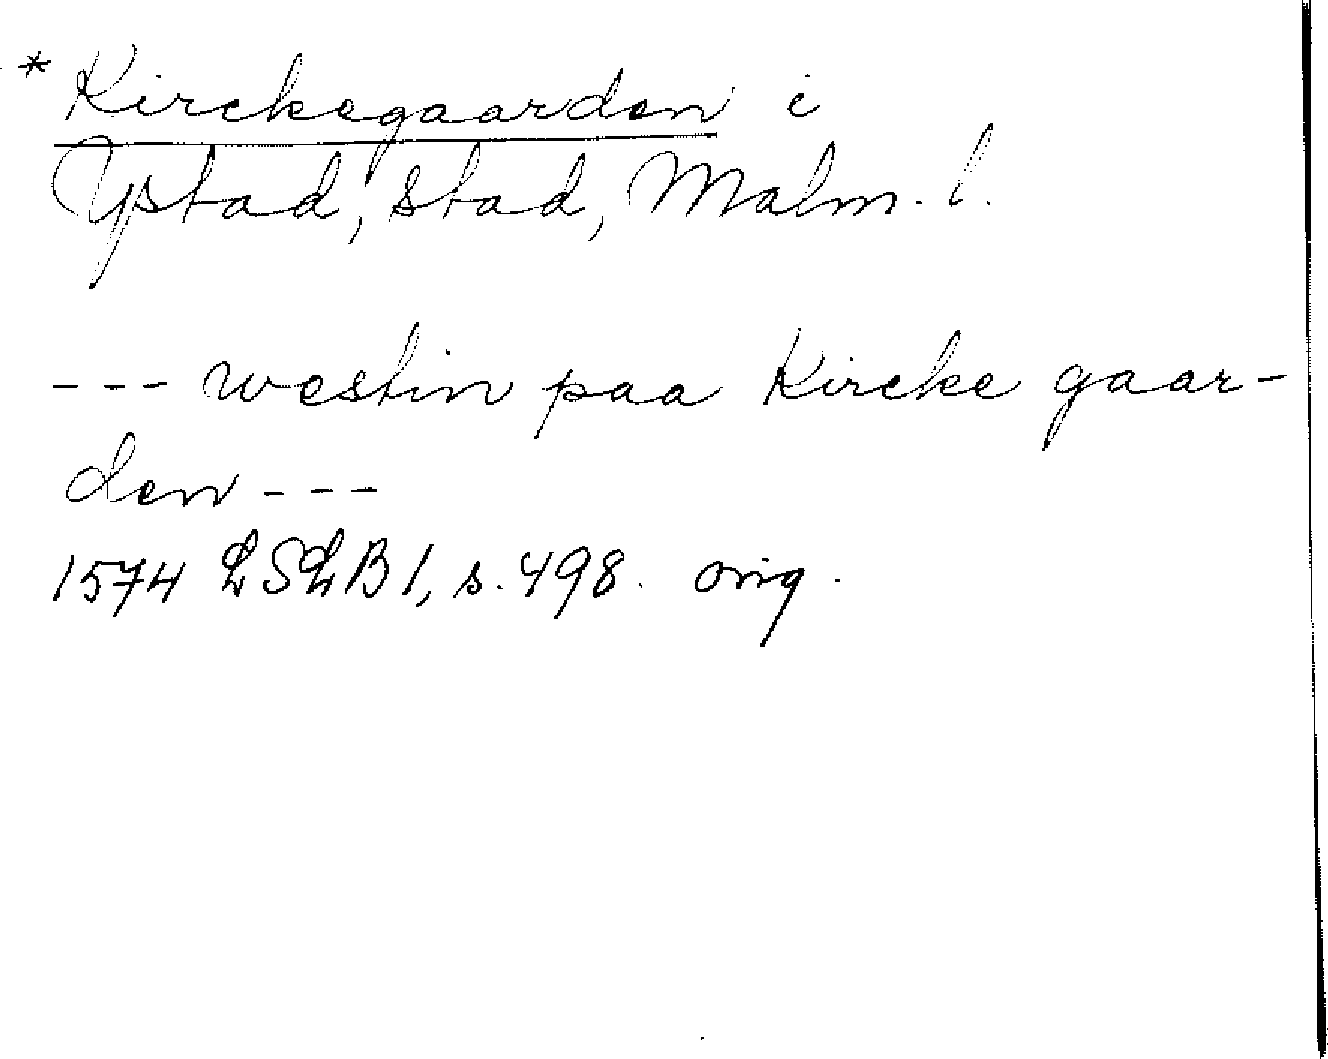 * Kirckegaarden i
Ystad, stad, Malm. l.
--- westin paa Kircke gaar-
den ---
1574 LSLB 1, s. 498. orig.